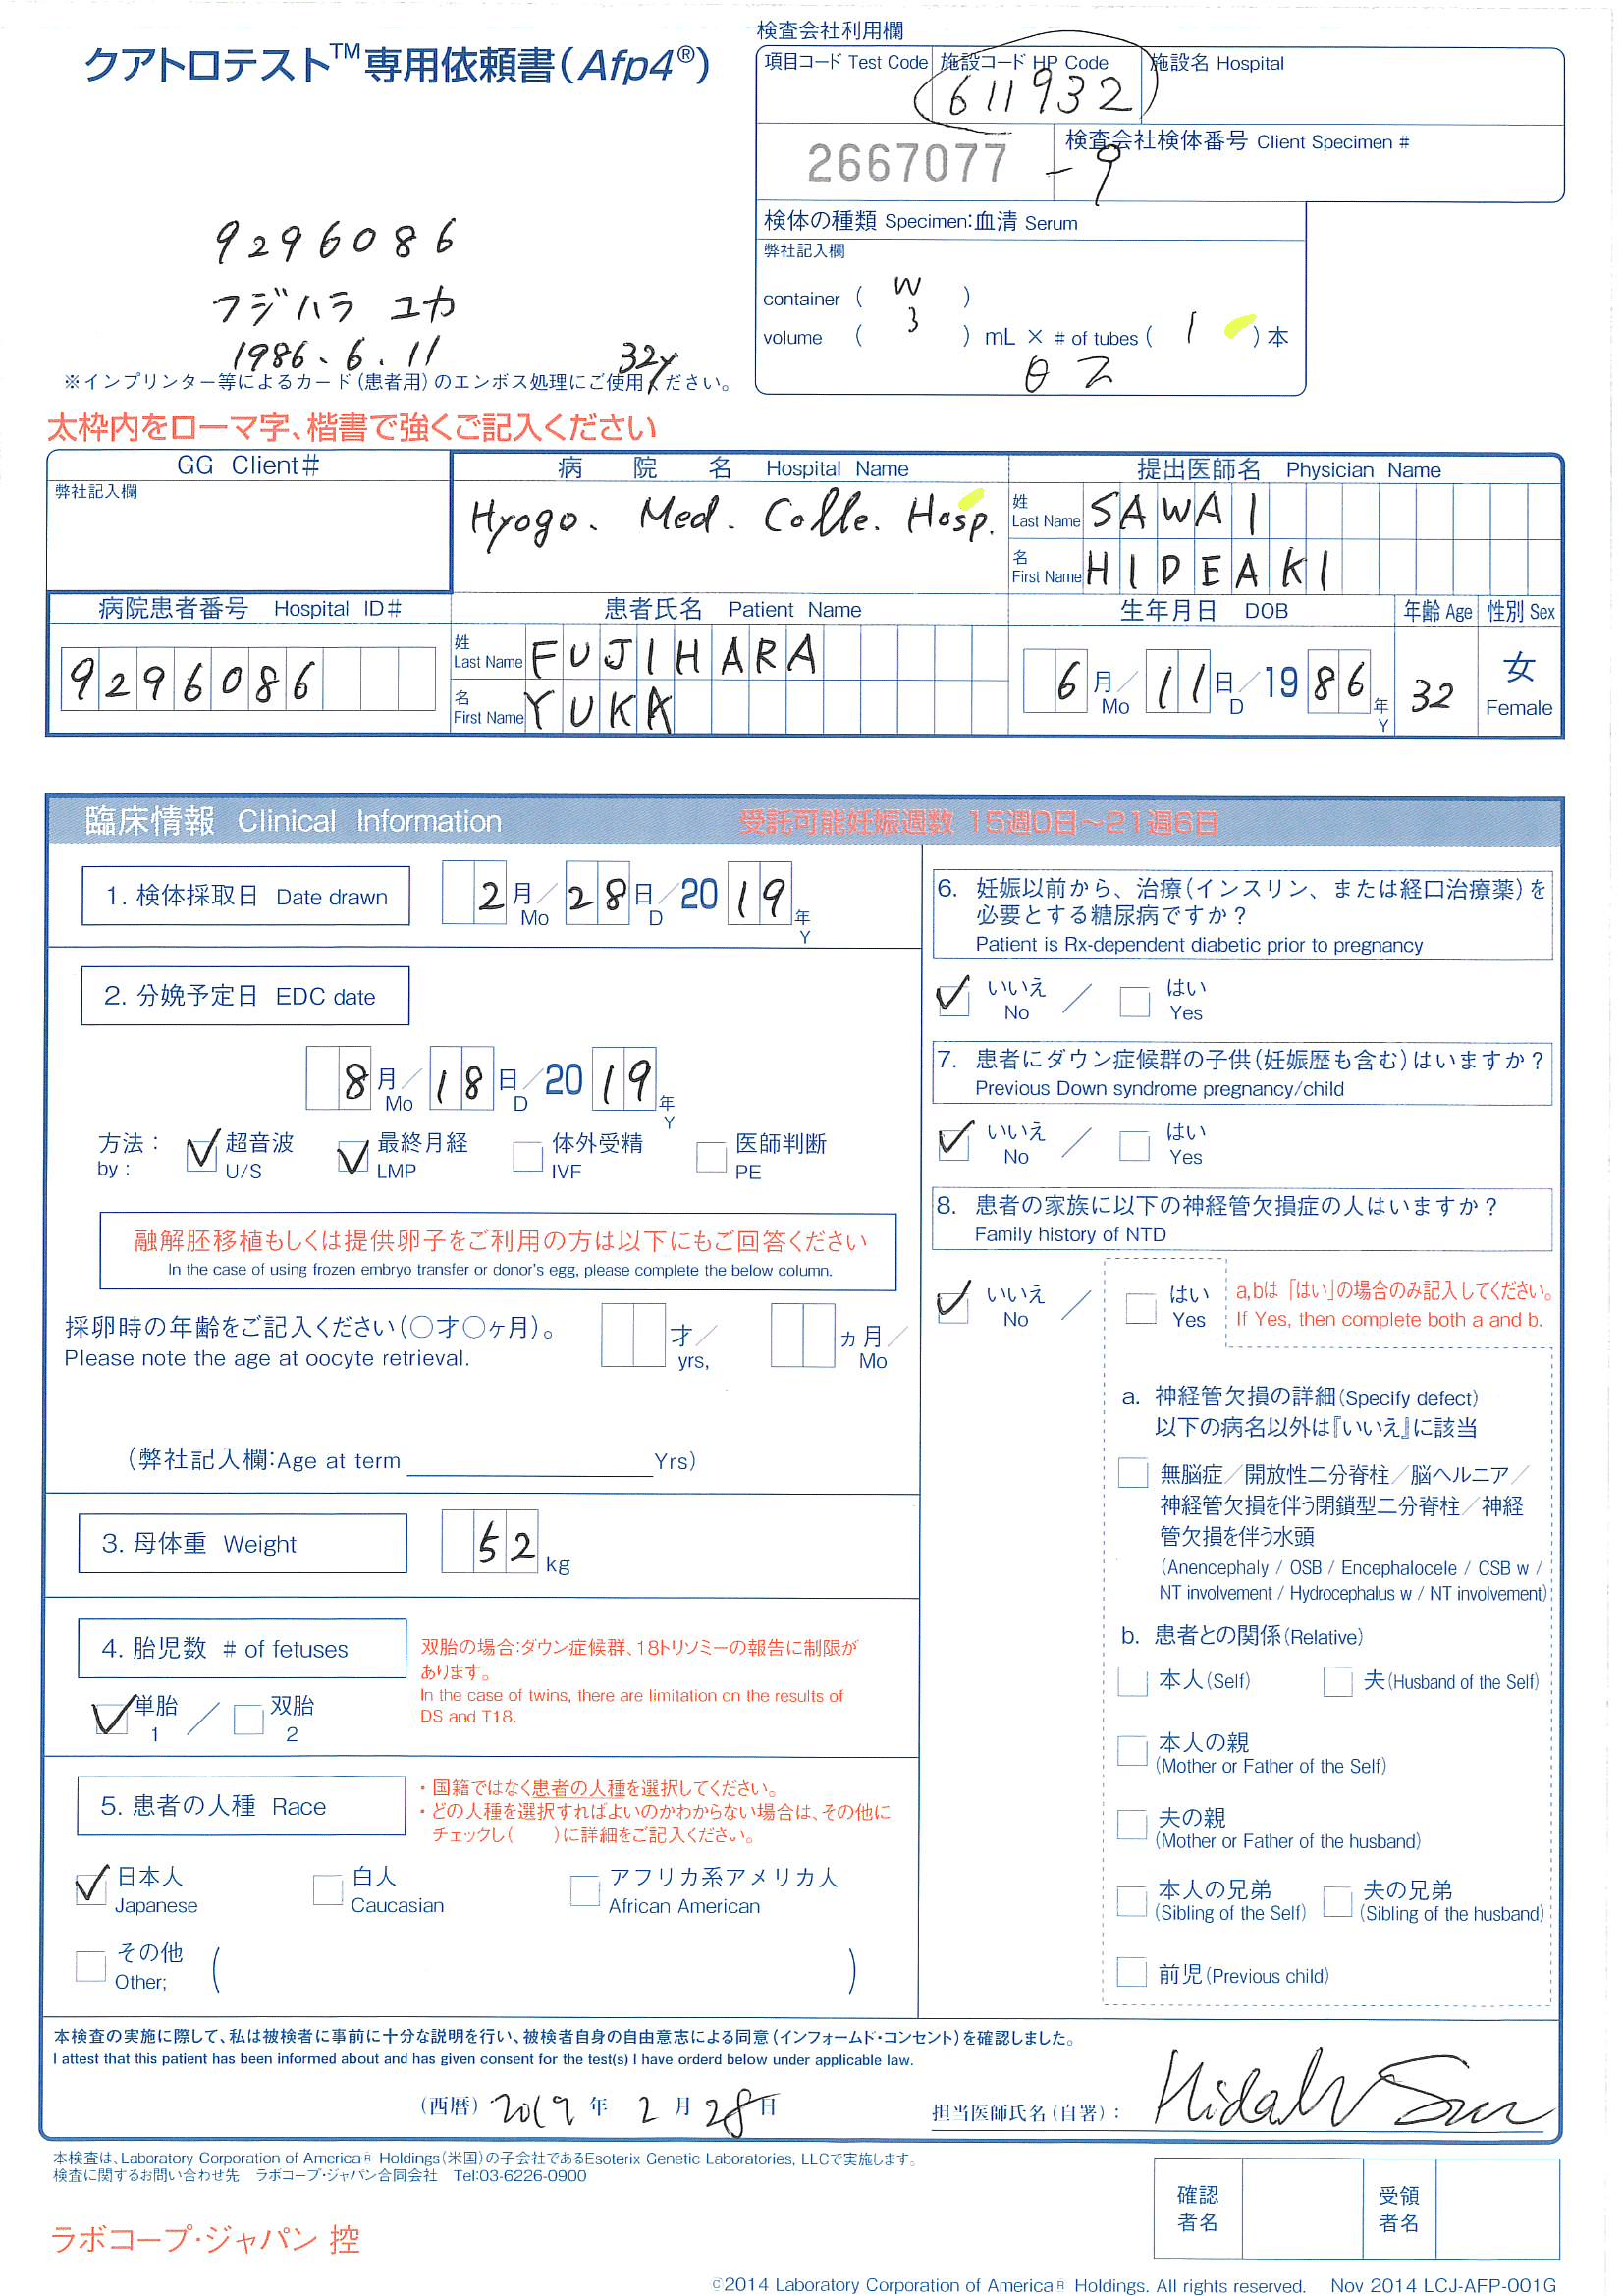 クアトロテスト™専用依頼書(Afp4®)
検査会社利用欄
項目コード Test Code 施設コード HP Code 施設名 Hospital
611932
2667077 -9
検査会社検体番号 Client Specimen #
検体の種類 Specimen:血清 Serum
弊社記入欄
container ( W )
volume ( 3 ) mL × # of tubes ( 1 )本
9296086
フジハラ ユカ
1986.6.11 32y
※インプリンター等によるカード(患者用)のエンボス処理にご使用ください。
太枠内をローマ字、楷書で強くご記入ください
GG Client# 病院名 Hospital Name 提出医師名 Physician Name
弊社記入欄
Hyogo. Med. Colle. Hosp.
姓 Last Name SAWAI
名 First Name HIDEAKI
病院患者番号 Hospital ID# 患者氏名 Patient Name 生年月日 DOB 年齢 Age 性別 Sex
9296086
姓 Last Name FUJIHARA
名 First Name YUKA
6月 Mo/11日 D/1986年 Y 32 女 Female
臨床情報 Clinical Information 受託可能妊娠週数 15週0日~21週6日
1. 検体採取日 Date drawn 2月 Mo/28日 D/2019年 Y
2. 分娩予定日 EDC date
8月 Mo/18日 D/2019年 Y
方法: ✓超音波 ✓最終月経 □体外受精 □医師判断
by: U/S LMP IVF PE
融解胚移植もしくは提供卵子をご利用の方は以下にもご回答ください
In the case of using frozen embryo transfer or donor's egg, please complete the below column.
採卵時の年齢をご記入ください(○才○ヶ月)。 才/ ヵ月/
Please note the age at oocyte retrieval. yrs, Mo
(弊社記入欄:Age at term Yrs)
3. 母体重 Weight 52 kg
4. 胎児数 # of fetuses
双胎の場合:ダウン症候群、18トリソミーの報告に制限が
あります。
In the case of twins, there are limitation on the results of
DS and T18.
✓単胎 1 / □双胎 2
5. 患者の人種 Race
・国籍ではなく患者の人種を選択してください。
・どの人種を選択すればよいのかわからない場合は、その他に
チェックし( )に詳細をご記入ください。
✓日本人 □白人 □アフリカ系アメリカ人
Japanese Caucasian African American
□その他 ( )
Other;
6. 妊娠以前から、治療(インスリン、または経口治療薬)を
必要とする糖尿病ですか?
Patient is Rx-dependent diabetic prior to pregnancy
✓いいえ No / □はい Yes
7. 患者にダウン症候群の子供(妊娠歴も含む)はいますか?
Previous Down syndrome pregnancy/child
✓いいえ No / □はい Yes
8. 患者の家族に以下の神経管欠損症の人はいますか?
Family history of NTD
✓いいえ No / □はい Yes
a,bは「はい」の場合のみ記入してください。
If Yes, then complete both a and b.
a. 神経管欠損の詳細(Specify defect)
以下の病名以外は『いいえ』に該当
□無脳症/開放性二分脊柱/脳ヘルニア/
神経管欠損を伴う閉鎖型二分脊柱/神経
管欠損を伴う水頭
(Anencephaly / OSB / Encephalocele / CSB w /
NT involvement / Hydrocephalus w / NT involvement)
b. 患者との関係(Relative)
□本人(Self) □夫(Husband of the Self)
□本人の親
(Mother or Father of the Self)
□夫の親
(Mother or Father of the husband)
□本人の兄弟 □夫の兄弟
(Sibling of the Self) (Sibling of the husband)
□前児(Previous child)
本検査の実施に際して、私は被検者に事前に十分な説明を行い、被検者自身の自由意志による同意(インフォームド・コンセント)を確認しました。
I attest that this patient has been informed about and has given consent for the test(s) I have orderd below under applicable law.
(西暦) 2019年 2月 28日 担当医師氏名(自署):
本検査は、Laboratory Corporation of America® Holdings(米国)の子会社であるEsoterix Genetic Laboratories, LLCで実施します。
検査に関するお問い合わせ先 ラボコープ・ジャパン合同会社 Tel:03-6226-0900
確認者名 受領者名
ラボコープ・ジャパン 控
©2014 Laboratory Corporation of America® Holdings. All rights reserved. Nov 2014 LCJ-AFP-001G